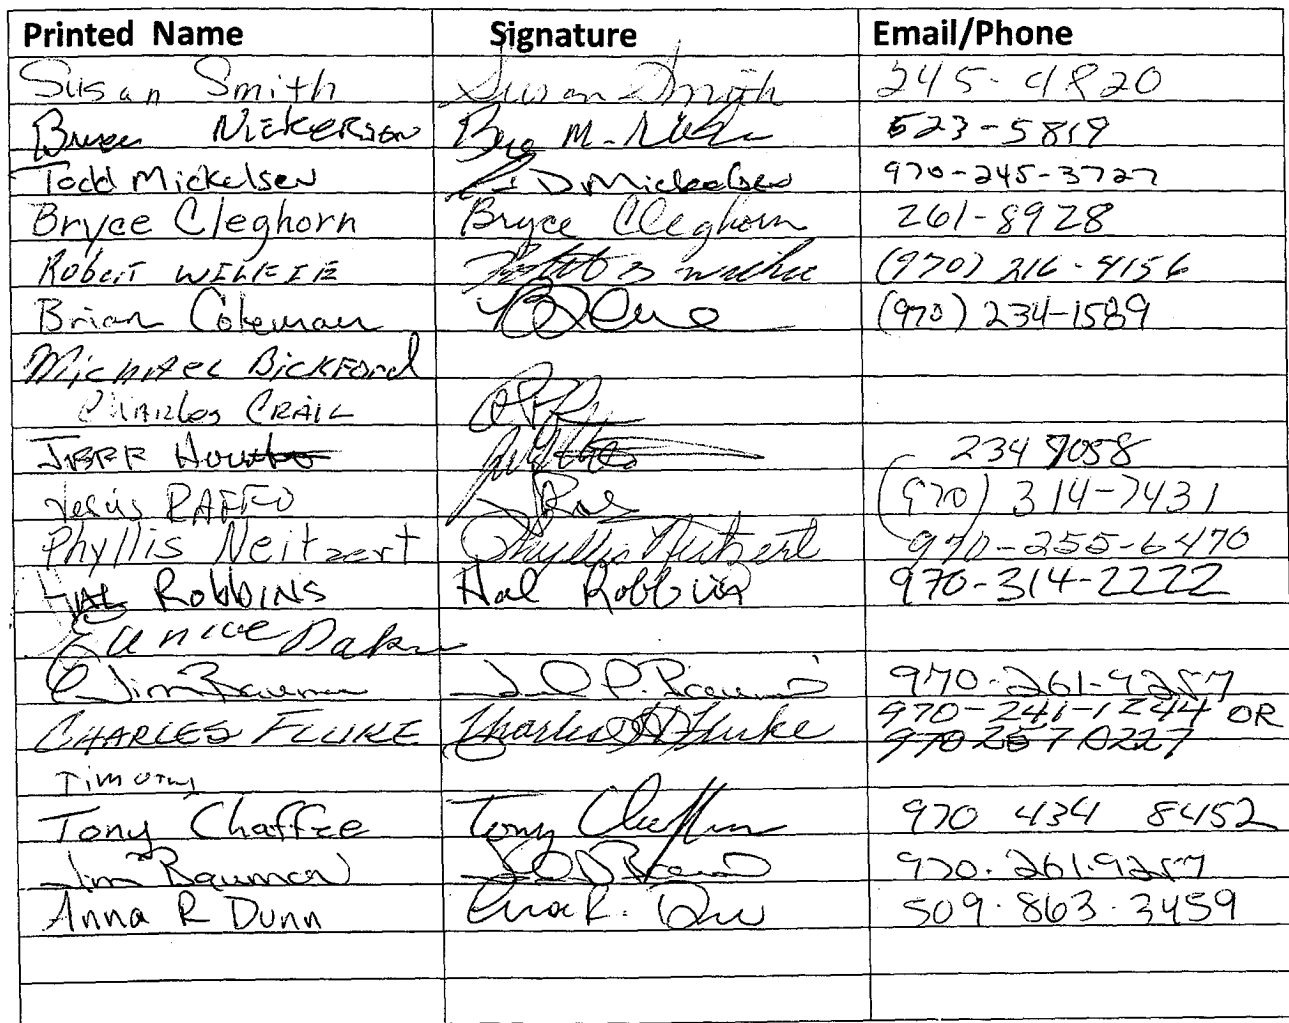 Printed Name Signature Email/Phone
Susan Smith Susan Smith 245-4820
Bruce NICKERSON 523-5819
Todd Mickelsen D Mickelsen 970-245-3727
Bryce Cleghorn Bryce Cleghorn 261-8928
Robert WILKIE (970) 216-4156
Brian Coleman (970) 234-1589
Michael Bickford
Charles CRAIL
JEFF 234 7058
Jesús RAFFO (970) 314-7431
Phyllis Neitzert Phyllis Neitzert 970-255-6470
HAL ROBBINS Hal Robbins 970-314-2222
Eunice
Jim Bauman 970-261-9257
CHARLES FLUKE Charles Fluke 970-241-1244 OR
970 257 0227
Timothy
Tony Chaffee Tony 970 434 8452
Jim Bauman 970.261.9257
Anna R Dunn 509.863.3459